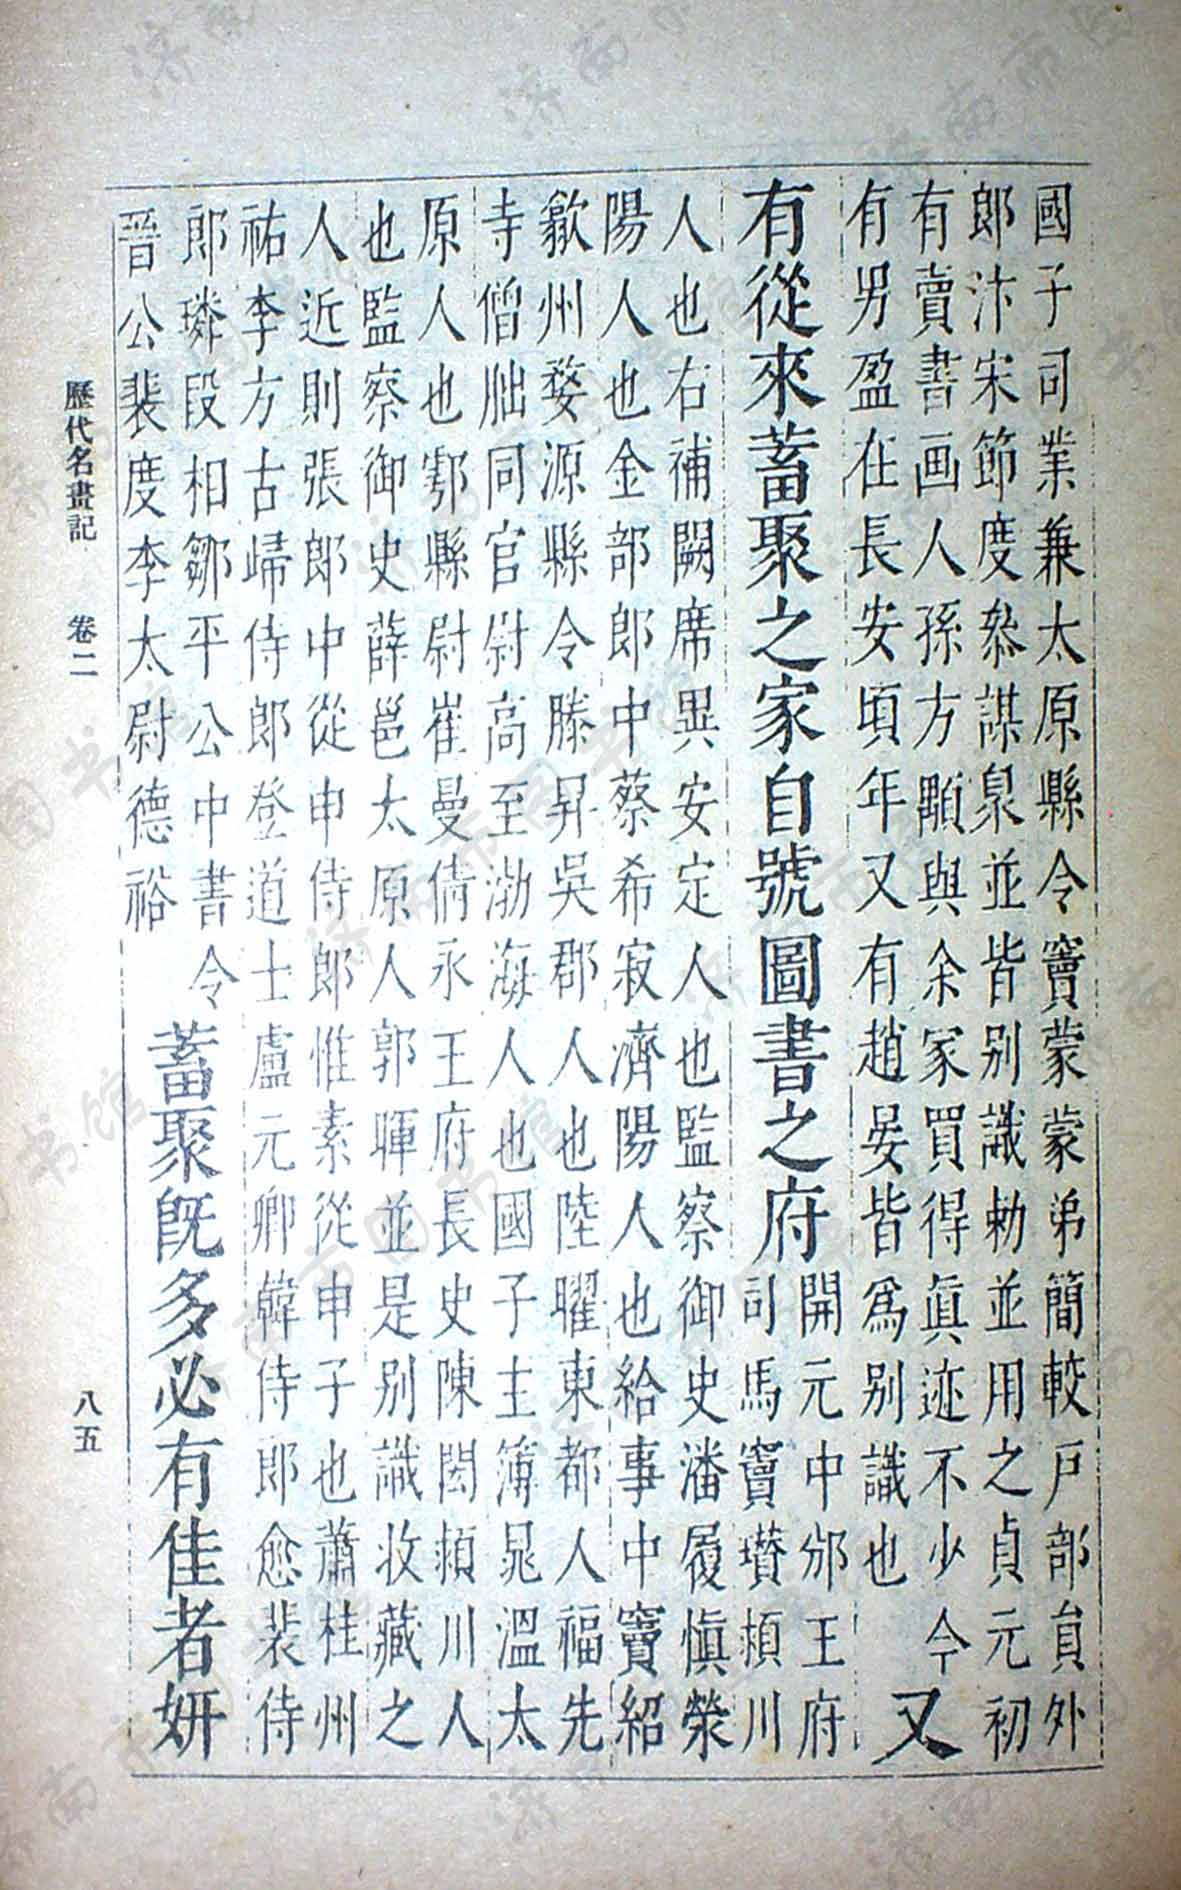 國子司業兼太原縣令竇蒙蒙弟簡較戶部員外
郎汴宋節度叅謀臮並皆別識勅並用之貞元初
有賣書画人孫方顒與余家買得眞迹不少今
有男盈在長安頃年又有趙晏皆爲別識也
又
有從來蓄聚之家自號圖書之府
開元中邠王府
司馬竇瓚頴川
人也右補闕席異安定人也監察御史潘履愼滎
陽人也金部郎中蔡希寂濟陽人也給事中竇紹
歙州婺源縣令滕昇吳郡人也陸曜東都人福先
寺僧朏同官尉高至渤海人也國子主簿晁溫太
原人也鄠縣尉崔曼倩永王府長史陳閎頴川人
也監察御史薛邕太原人郭暉並是別識收藏之
人近則張郎中從申侍郎惟素從申子也蕭桂州
祐李方古歸侍郎登道士盧元卿韓侍郎愈裴侍
郎璘段相鄒平公中書令
晉公裴度李太尉德裕
蓄聚旣多必有佳者妍
歷代名畫記 卷二 八五